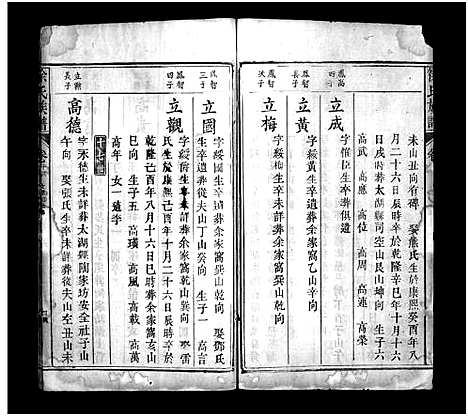 未山丑向有碑 娶熊氏生於康熙癸酉年八
月二十六日辰時卒於乾隆辛巳年十月十六
日戌時葬太湖縣司空山艮山坤向 生子六
高武 高應 高位 高周 高連 高榮
鳳高
四子
立成
字惟位生卒葬俱遺
鳳智
長子
立黃
字綏黃生卒遺葬余家窩乙山辛向
鳳智
次子
立梅
字綏 生卒未詳葬余家窩乾山巽向
鳳智
三子
立國
字綏國生卒遺葬從夫山丁山癸向 生子一 高言
鳳智
四子
立觀
字綏 生卒未詳葬余家窩乾山巽向 娶鄧氏
氏生於康熙己酉年十月二十六日辰時卒於
乾隆己酉年八月十六日巳時葬余家窩亥山
巳向 生子五 高瑛 高風 高載
高年 女一適李
十七世
立勳
長子
高德
字永德生未詳葬太湖縣陶家坊安全社子山
午向 娶張氏生卒未詳葬後夫山空丑山未
徐氏族譜